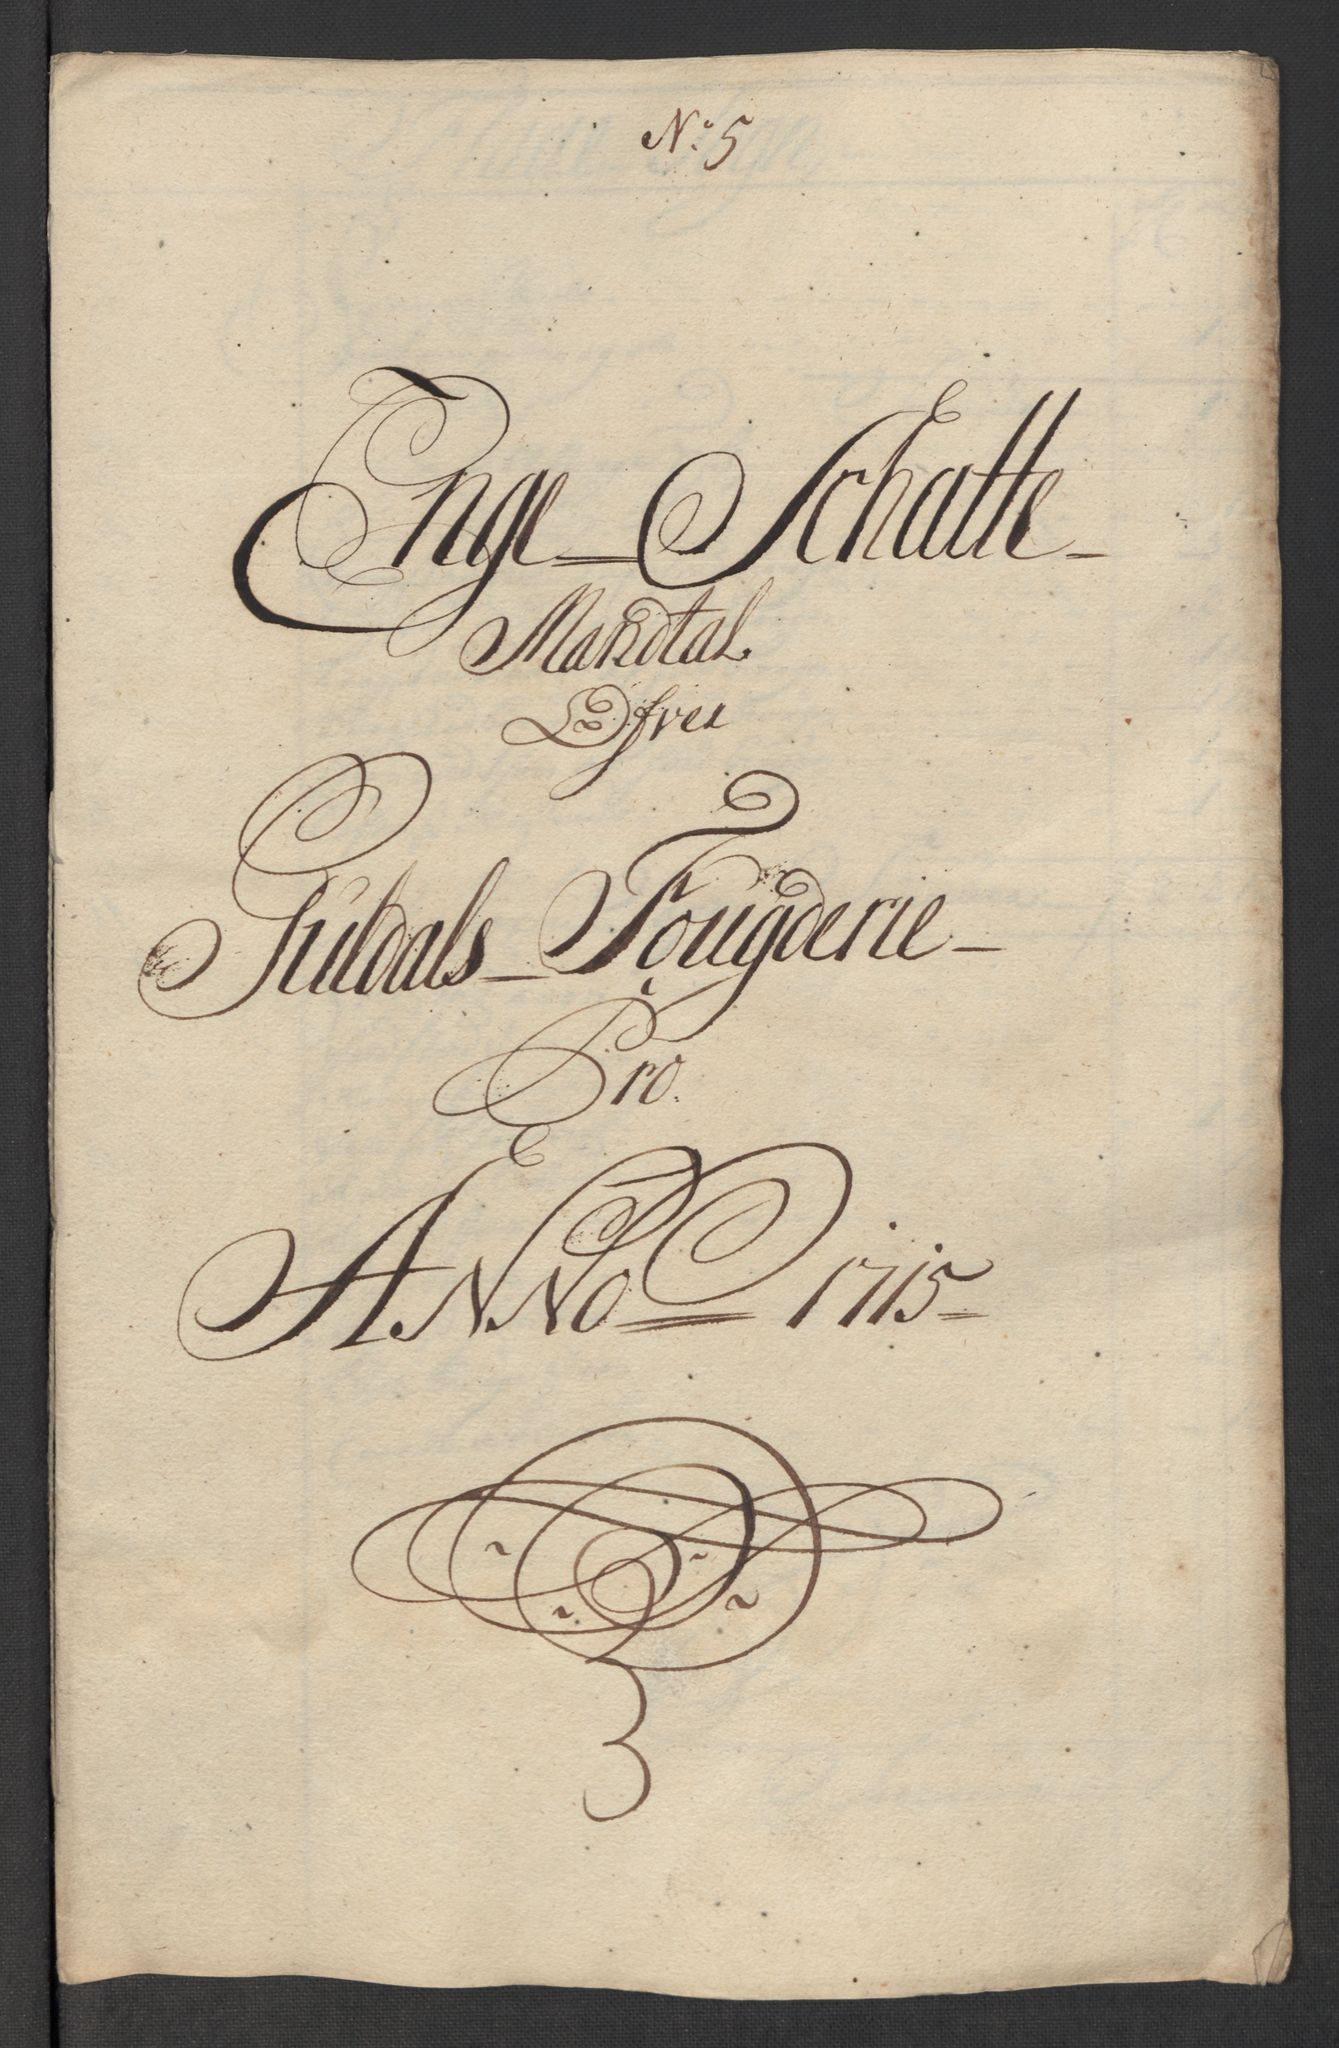 No. 5
Enge Schatte
Mandtal
Ofver
Guldals Fougderie
Pro.
ANNO 1715